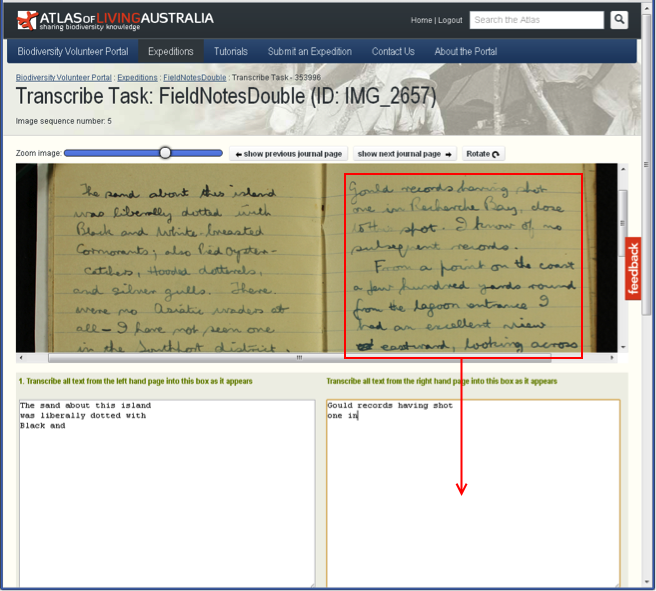 ATLAS OF LIVING AUSTRALIA
sharing biodiversity knowledge
Home | Logout
Search the Atlas
Biodiversity Volunteer Portal Expeditions Tutorials Submit an Expedition Contact Us About the Portal
Biodiversity Volunteer Portal : Expeditions : FieldNotesDouble : Transcribe Task - 353996
Transcribe Task: FieldNotesDouble (ID: IMG_2657)
Image sequence number: 5
Zoom image:
show previous journal page
show next journal page
Rotate
The sand about this island
was liberally dotted with
Black and White-breasted
Cormorants; also Pied Oyster-
catchers, Hooded dotterels,
and silver gulls. There
were no Asiatic waders at
all - I have not seen one
in the Southport district.
Gould records having shot
one in Recherche Bay, close
to the spot. I know of no
subsequent records.
From a point on the coast
a few hundred yards round
from the lagoon entrance I
had an excellent view
eastward, looking across
feedback
1. Transcribe all text from the left hand page into this box as it appears
The sand about this island
was liberally dotted with
Black and
Transcribe all text from the right hand page into this box as it appears
Gould records having shot
one in